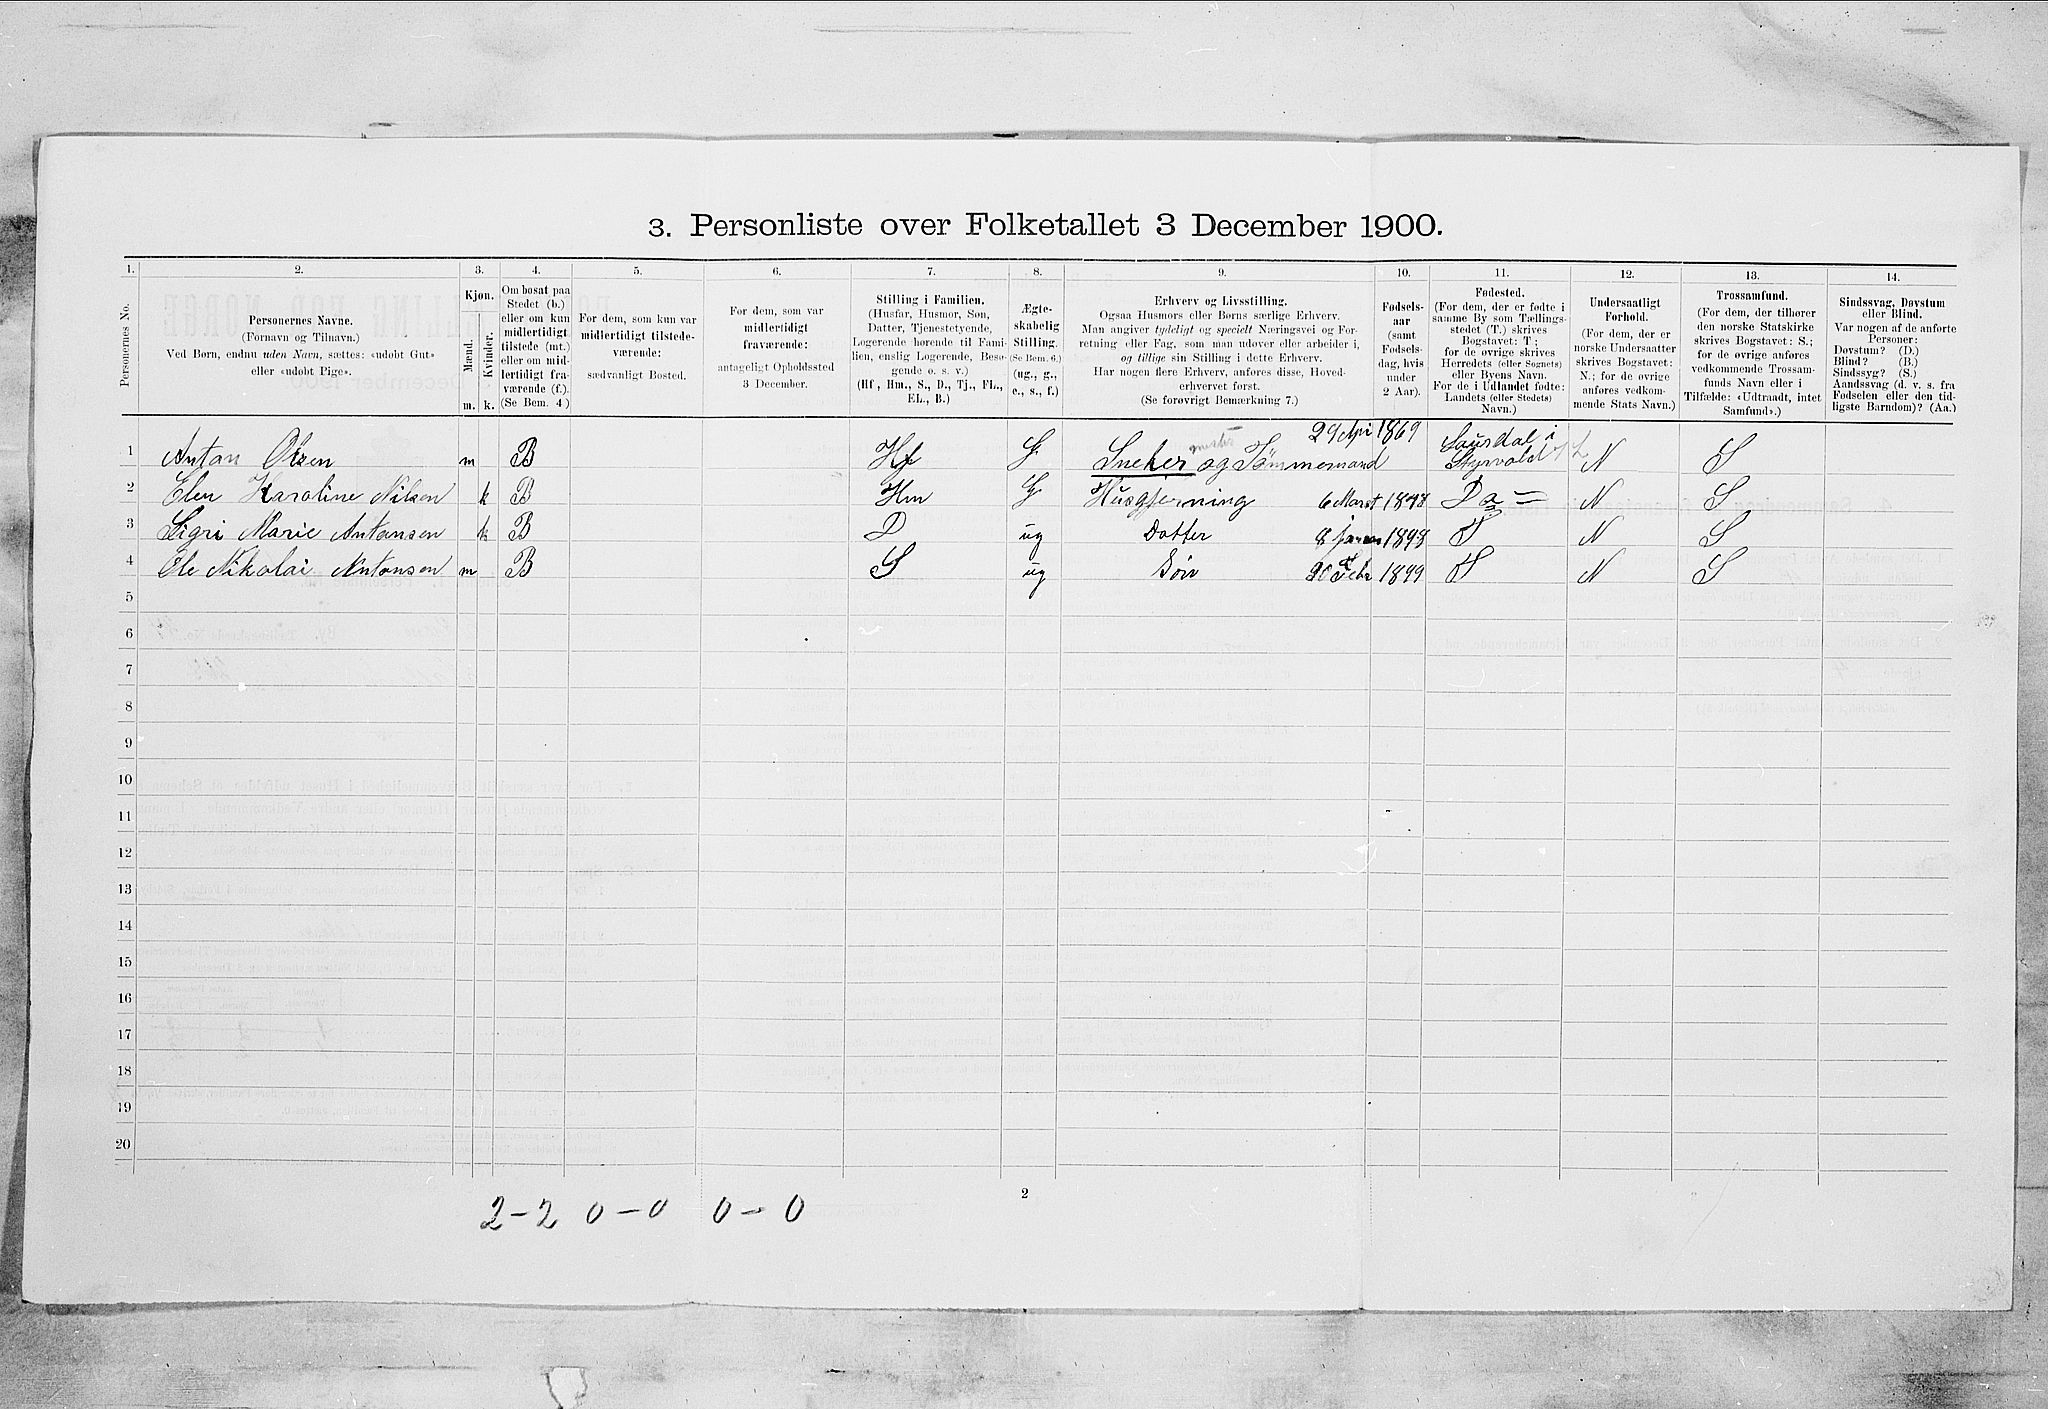 3. Personliste over Folketallet 3 December 1900.
1. 2. 3. 4. 5. 6. 7. 8. 9. 10. 11. 12. 13. 14.
Personernes No.
Personernes Navne.
(Fornavn og Tilnavn.)
Ved Børn, endnu uden Navn, sættes: «udøbt Gut»
eller «udøbt Pige».
Kjøn.
Mænd.
Kvinder.
m. k.
Om bosat paa
Stedet (b.)
eller om kun
midlertidigt
tilstede (mt.)
eller om mid-
lertidigt fra-
værende (f.).
(Se Bem. 4)
For dem, som kun var
midlertidigt tilstede-
værende:
sædvanligt Bosted.
For dem, som var
midlertidigt
fraværende:
antageligt Opholdssted
3 December.
Stilling i Familien.
(Husfar, Husmor, Søn,
Datter, Tjenestetyende,
Logerende hørende til Fami-
lien, enslig Logerende, Besø-
gende o. s. v.)
(Hf, Hm., S., D., Tj., FL.,
EL., B.)
Ægte-
skabelig
Stilling.
(Se Bem. 6.)
(ug., g.,
e., s., f.)
Erhverv og Livsstilling.
Ogsaa Husmors eller Børns særlige Erhverv.
Man angiver tydeligt og specielt Næringsvei og For-
retning eller Fag, som man udøver eller arbeider i,
og tillige sin Stilling i dette Erhverv.
Har nogen flere Erhverv, anføres disse, Hoved-
erhvervet først.
(Se forøvrigt Bemærkning 7.)
Fødsels-
aar
(samt
Fødsels-
dag, hvis
under
2 Aar).
Fødested.
(For dem, der er fødte i
samme By som Tællings-
stedet (T.) skrives
Bogstavet: T;
for de øvrige skrives
Herredets (eller Sognets)
eller Byens Navn.
For de i Udlandet fødte:
Landets (eller Stedets)
Navn.)
Undersaatligt
Forhold.
(For dem, der er
norske Undersaatter
skrives Bogstavet:
N.; for de øvrige
anføres vedkom-
mende Stats Navn.)
Trossamfund.
(For dem, der tilhører
den norske Statskirke
skrives Bogstavet: S.;
for de øvrige anføres
vedkommende Trossam-
funds Navn eller i
Tilfælde: «Udtraadt, intet
Samfund».)
Sindssvag, Døvstum
eller Blind.
Var nogen af de anførte
Personer:
Døvstum? (D.)
Blind? (B.)
Sindssyg? (S.)
Aandssvag (d. v. s. fra
Fødselen eller den tid-
ligste Barndom)? (Aa.)
1 Antan Olsen m B Hf G Sneker og Tømmermand 29 Apr 1869 Laurdal i Styrvold N S
2 Elen Karoline Nilsen k B Hm G Husgjerning 6 Marst 1878 Da = N S
3 Sigri Marie Antansen k B D ug Datter 8 januar 1898 T N S
4 Ole Nikolai Antonsen m B S ug Søn 20 Febr 1899 T N S
5
6
7
8
9
10
11
12
13
14
15
16
17
18
19
20
2
2-2 0-0 0-0